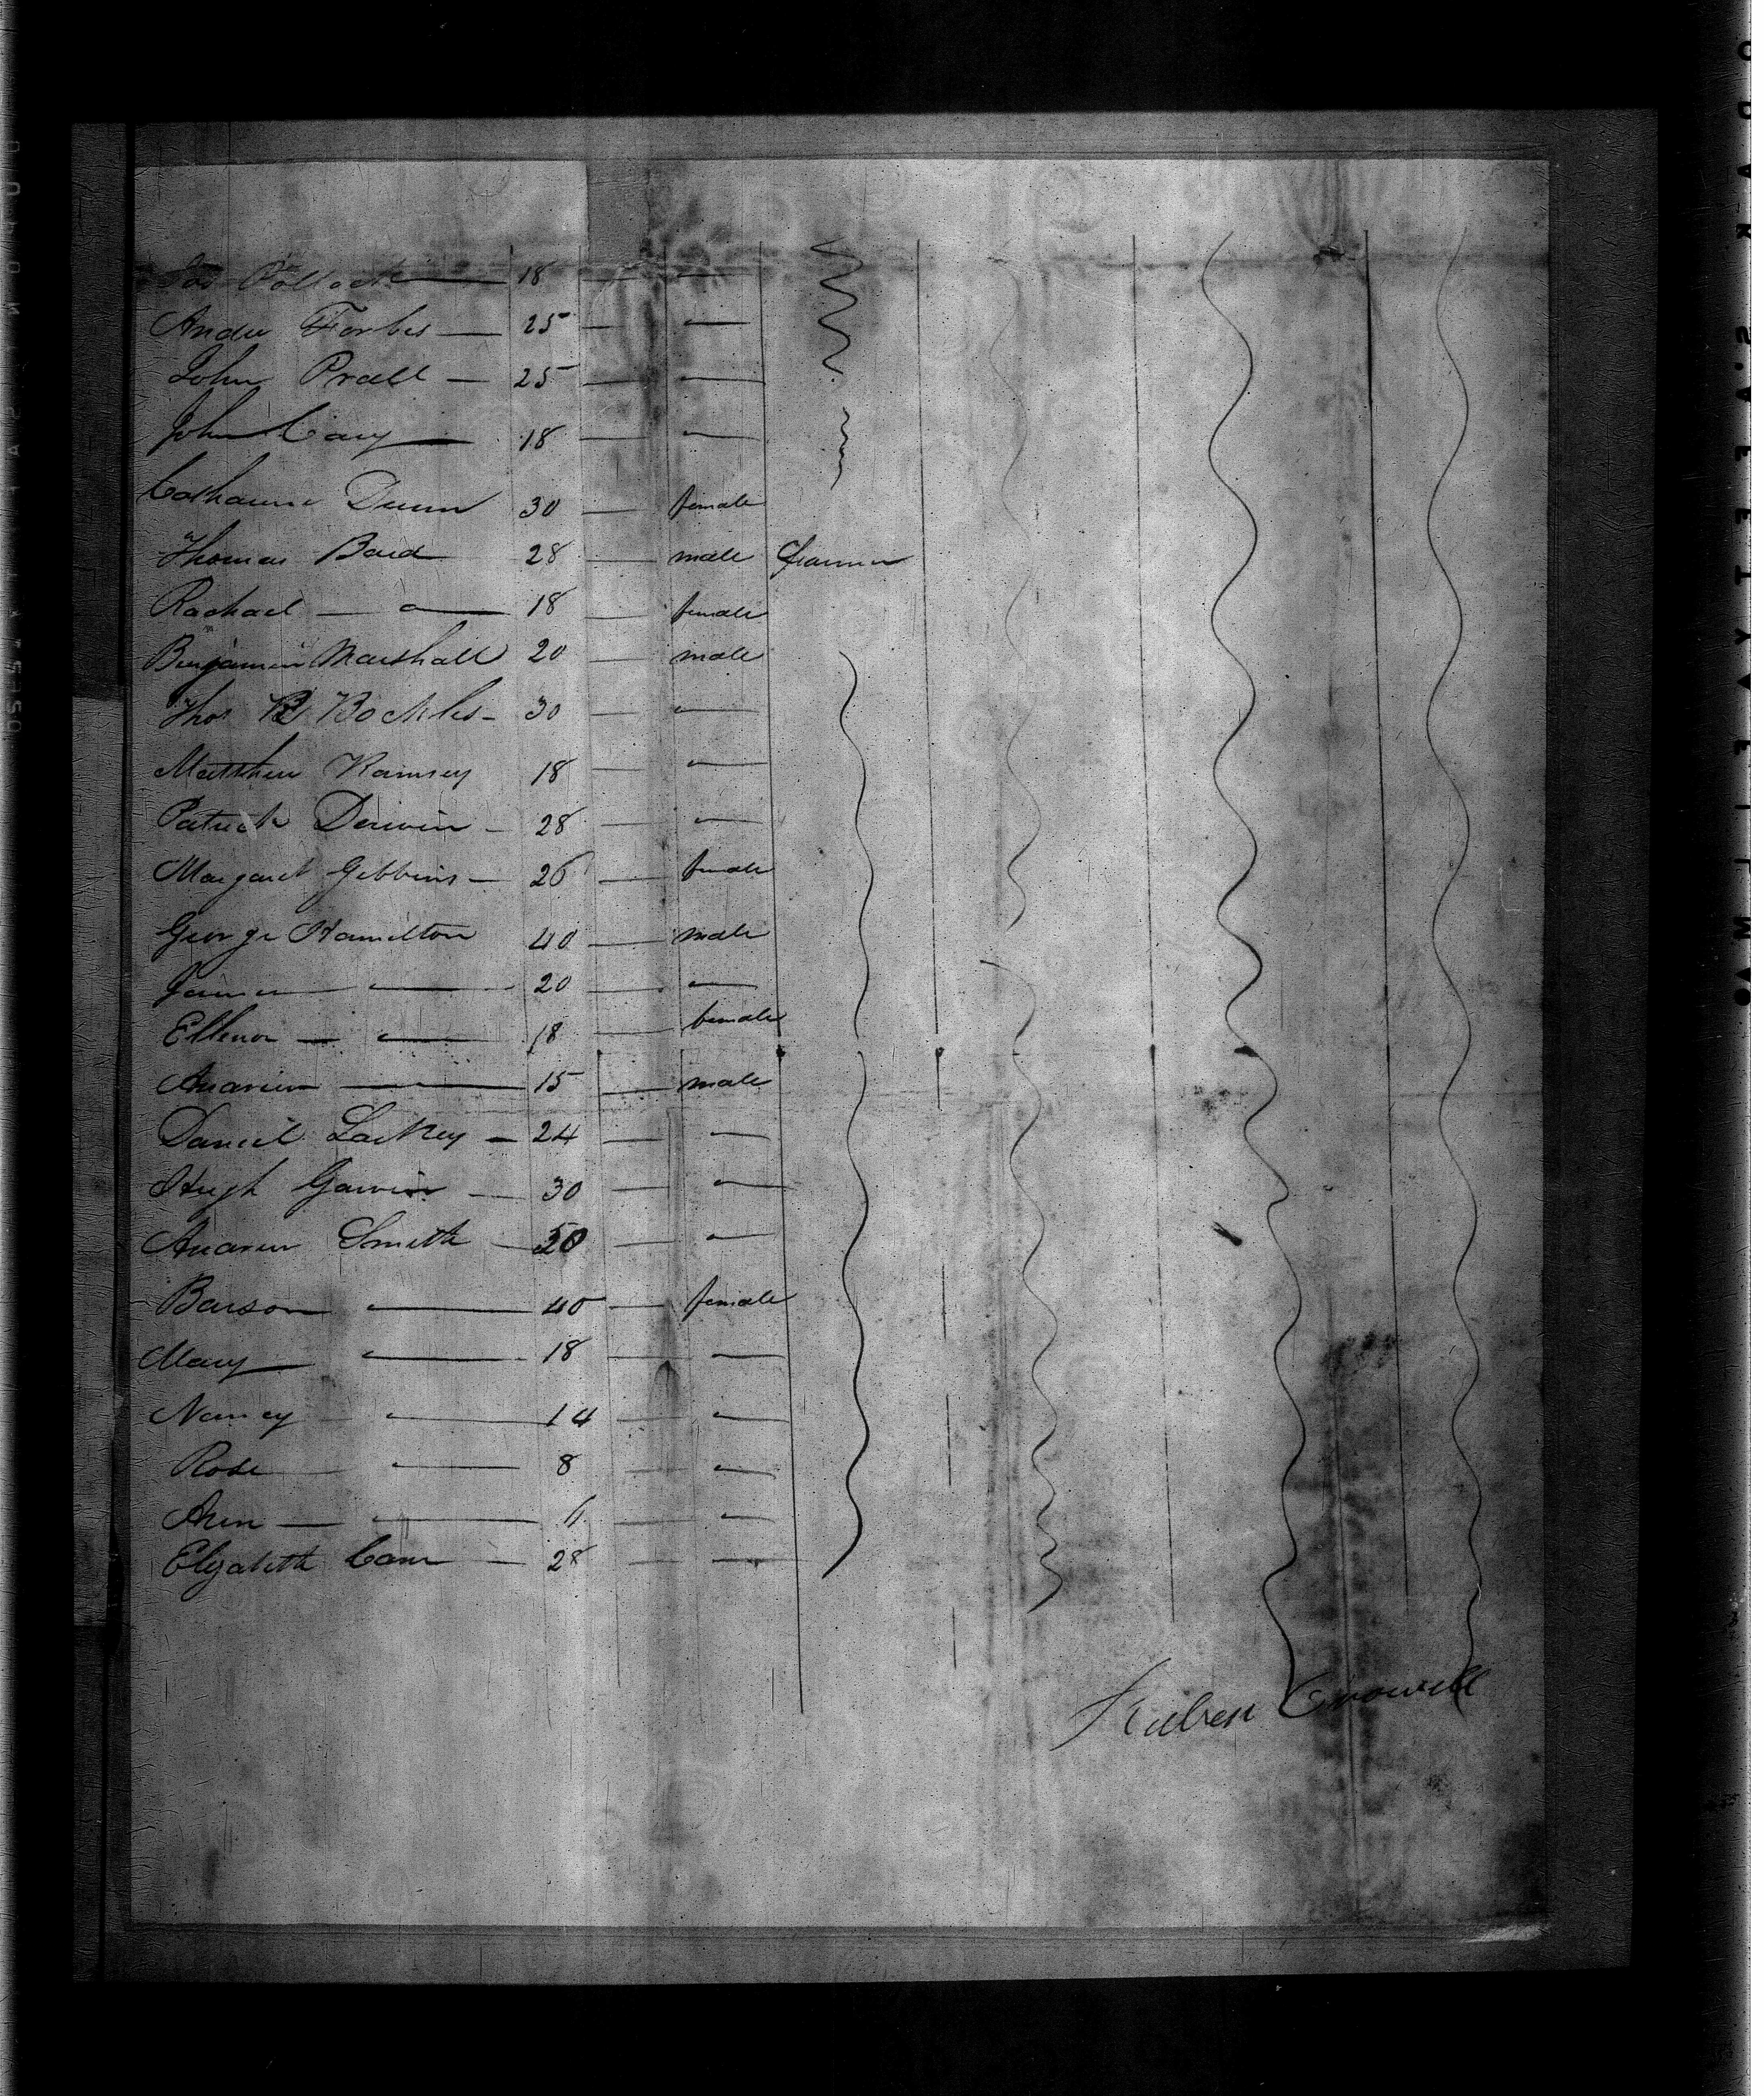 Jas Pollock — 18 — —
Andw Forbes — 25 — —
John Pratt — 25 — —
John Cary — 18 — —
Catharine Dunn 30 — female
Thomas Baird 28 — male Farmer
Rachael — — 18 — female
Benjamin Marshall 20 — male
Thos B Bockles - 30 — —
Matthew Ramsey 18 — —
Patrick Derwin - 28 — —
Margaret Gibbins — 26 — female
George Hamilton 40 — male
James — 20 — —
Ellenor — — 18 — female
Andrew — 15 — male
Daniel Lackey — 24 — —
Hugh Garvin — 30 — —
Andrew Smith — 50 — —
— 40 — female
Mary — 18 — —
Nancy — 14 — —
Rose — 8 — —
Ann — — 6 — —
Elizabeth Carr — 28 — —
Ruben Crowell